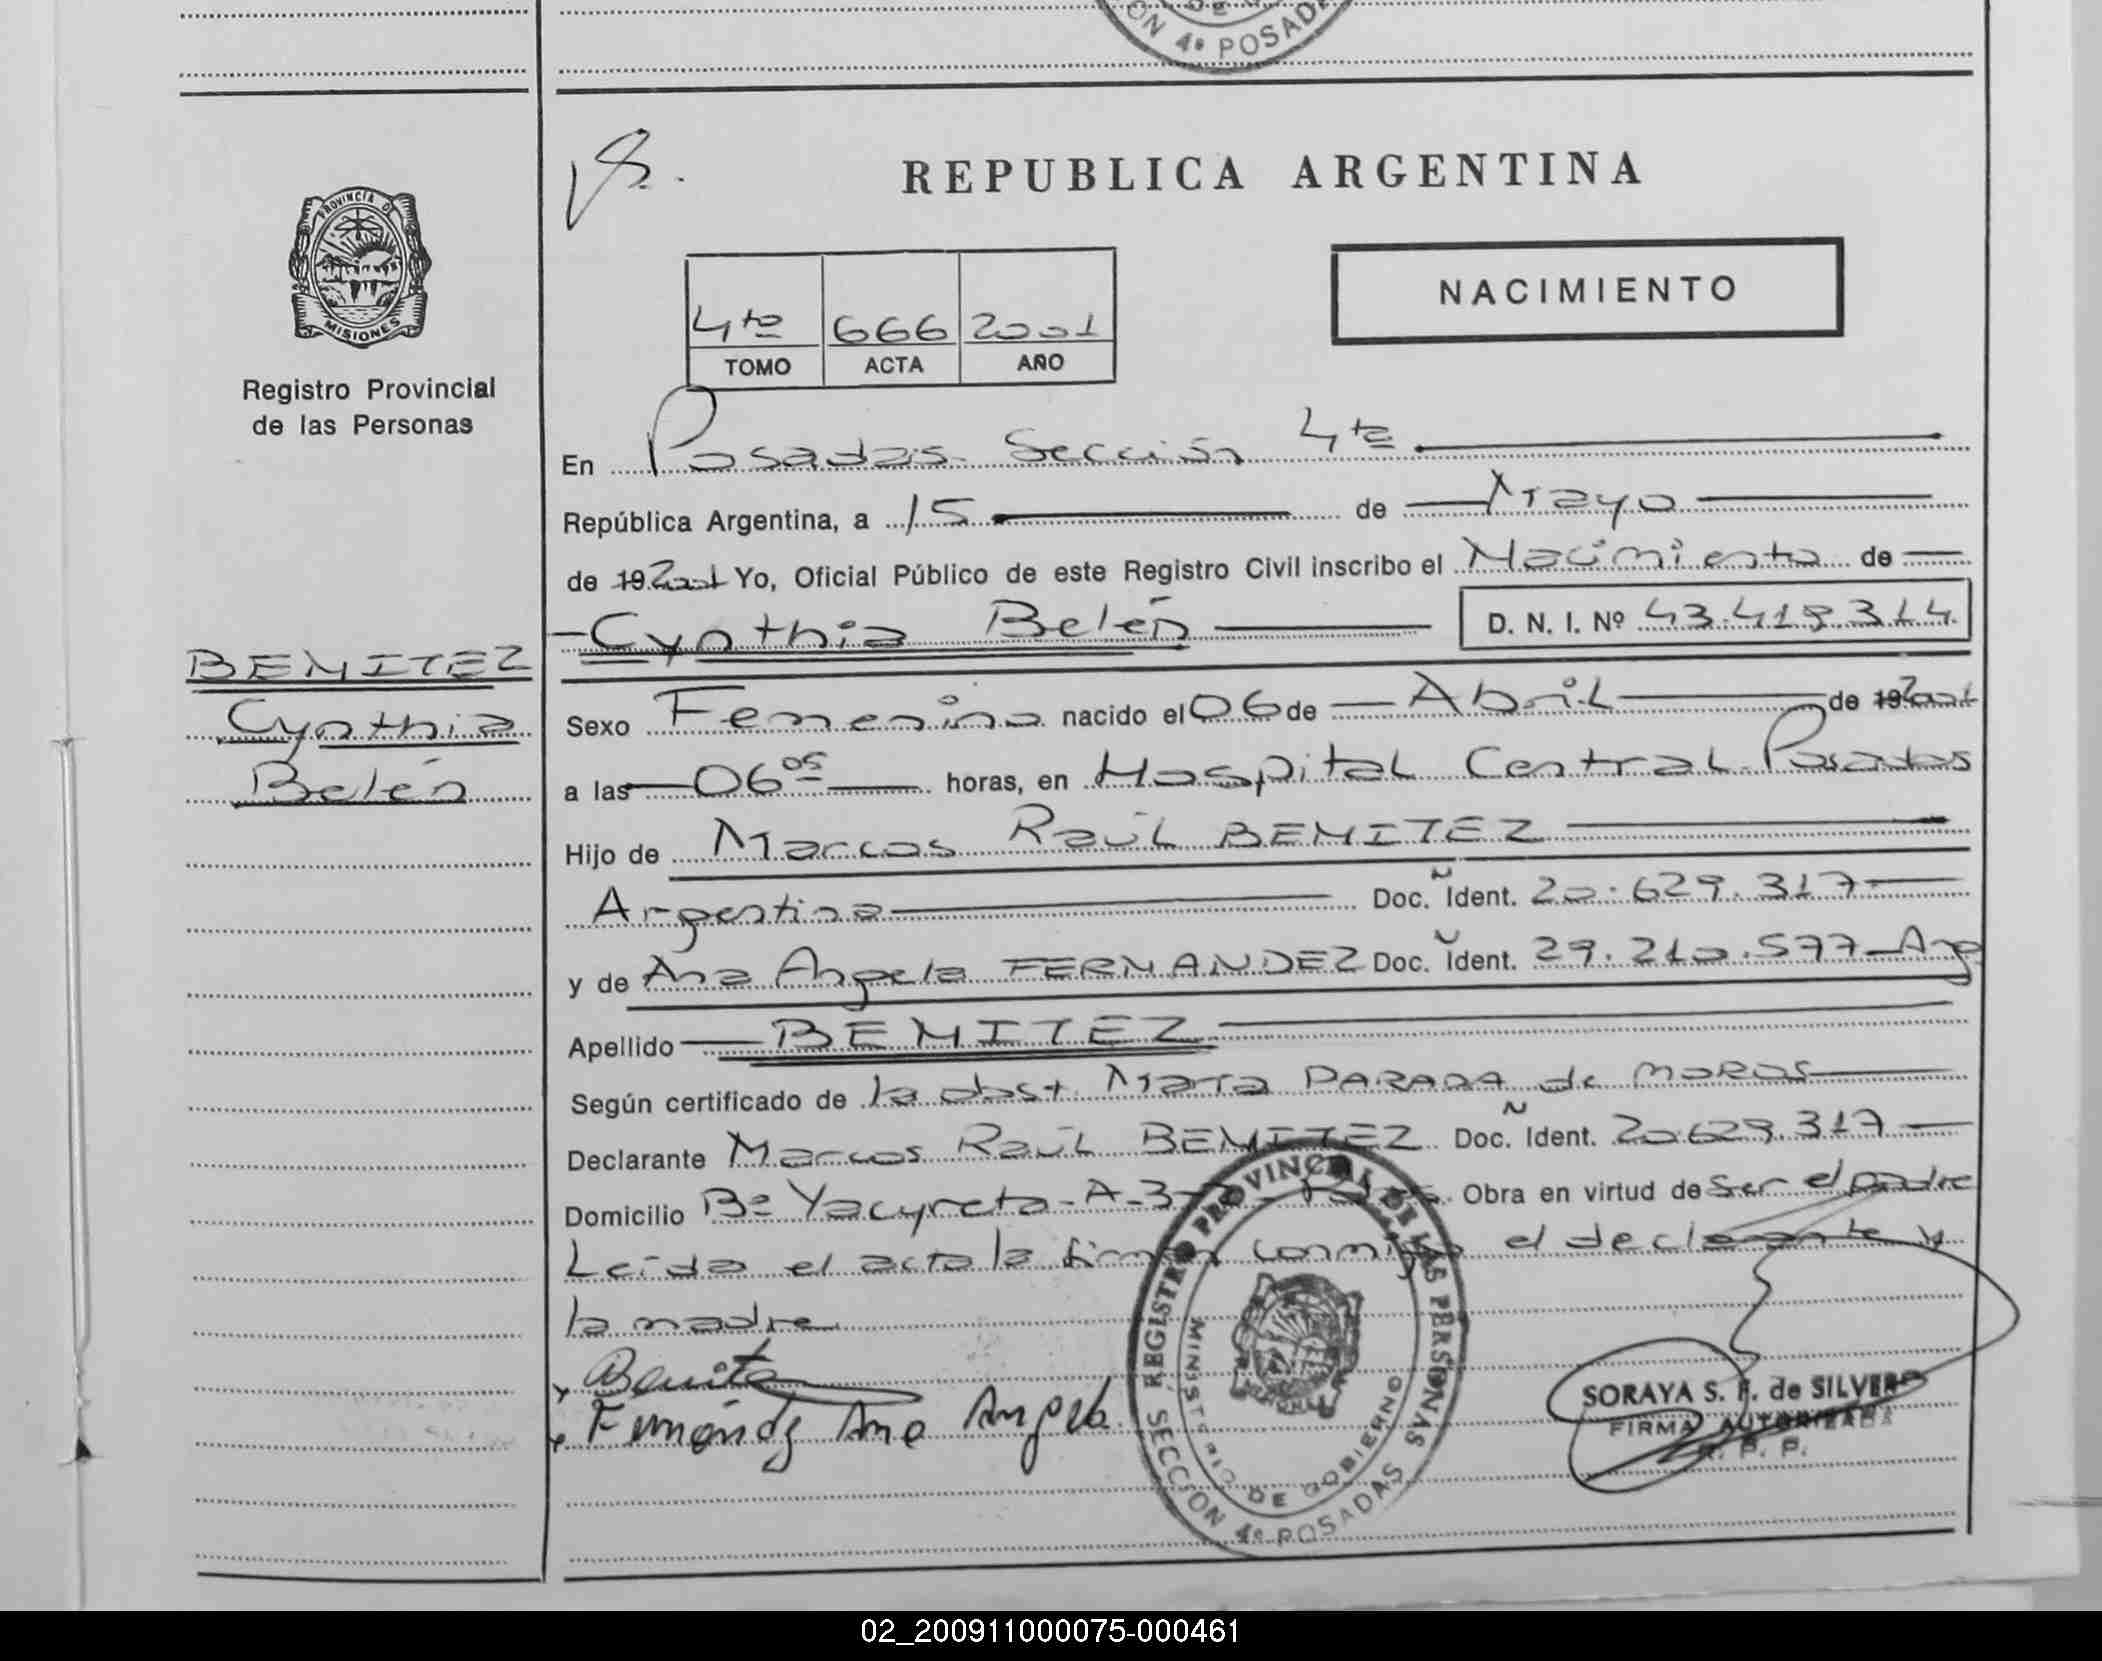 DE
ON 4ª POSADA
PROVINCIA DE
MISIONES
Registro Provincial
de las Personas
BENITEZ
Cynthia
Belén
REPUBLICA ARGENTINA
NACIMIENTO
4to 666 2001
TOMO ACTA AÑO
En Posadas Sección 4ta
República Argentina, a 15 de Mayo
de 19 2001 Yo, Oficial Público de este Registro Civil inscribo el Nacimiento de
Cynthia Belén D. N. I. Nº 43.418.314
Sexo Femenino nacido el 06 de Abril de 19 2001
a las 06 05 horas, en Hospital Central Posadas
Hijo de Marcos Raúl BENITEZ
Argentina Doc. Ñ Ident. 20.629.317
y de Ana Angela FERNANDEZ Doc. Ident. 29.210.577 Arg
Apellido BENITEZ
Según certificado de la obst. Mara PARADA de MOROS
Declarante Marcos Raúl BENITEZ Doc. Ñ Ident. 20.629.317
Domicilio Bº Yacyreta - A-3 Obra en virtud de ser el padre
Leída el acta la firman conmigo el declarante y
la madre
Benitez
Fernández Ana Angela
REGISTRO PROVINCIAL DE LAS PERSONAS
MINISTERIO DE GOBIERNO
SECCION 4ª POSADAS
SORAYA S. F. de SILVERO
FIRMA AUTORIZADA
R. P. P.
02_200911000075-000461